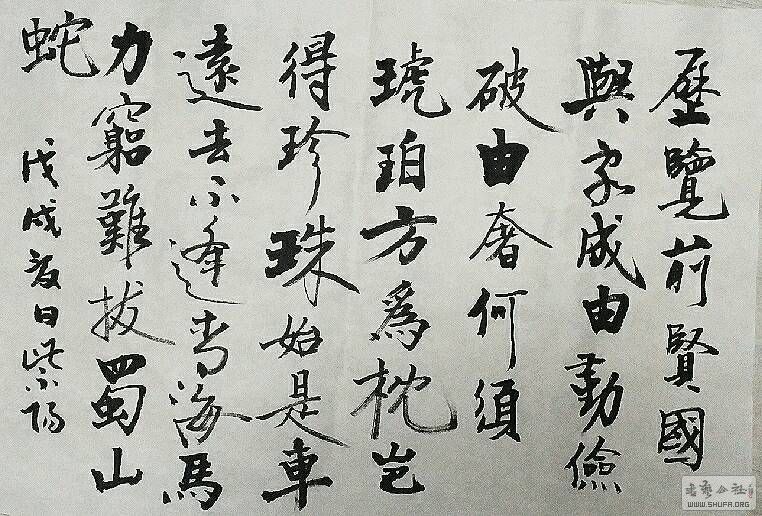 歷覽前賢國
與家成由勤儉
破由奢何須
琥珀方為枕豈
得珍珠始是車
遠去不逢青海馬
力窮難拔蜀山
蛇
戊戌夏日紫陽
书艺公社
WWW.SHUFA.ORG